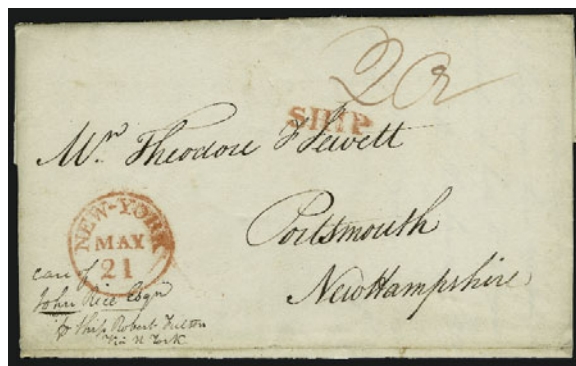 20
SHIP
Mr. Theodore F Jewett
Portsmouth
New Hampshire
NEW-YORK
MAY
21
care of
John Rice Esqr
p Ship Robert Fulton
Via N York